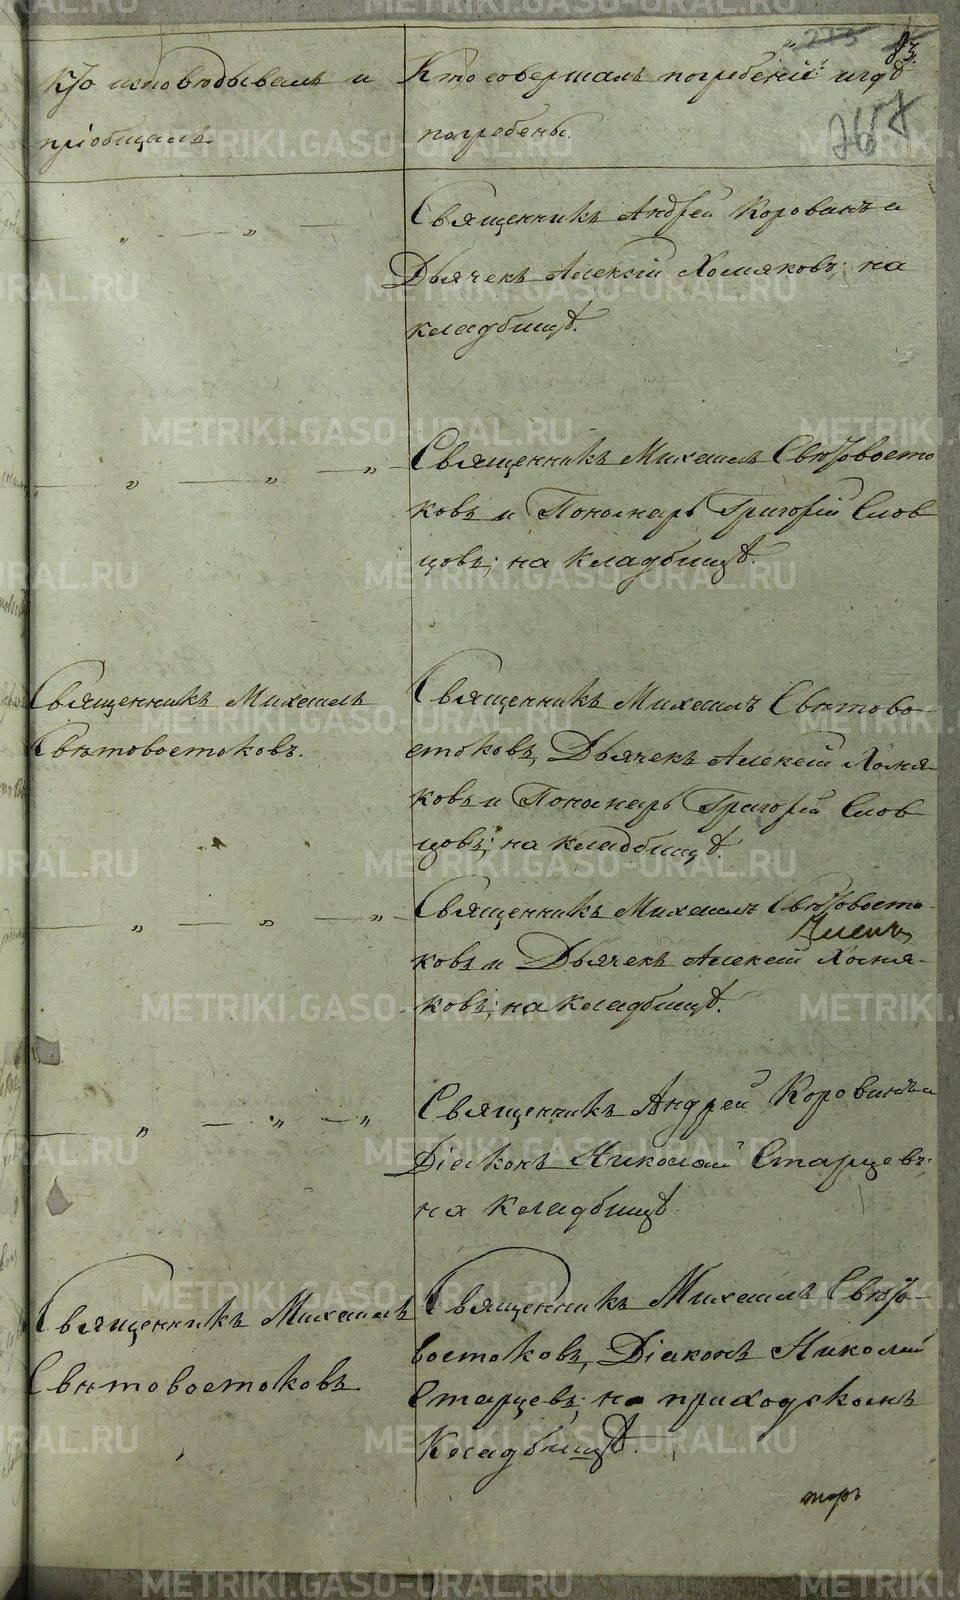 273
83.
267
Кто исповѣдывалъ и
пріобщалъ
Кто совершалъ погребеніе и гдѣ
погребены.
Священникъ Андрей Корованъ и
Дьячекъ Алексій Хомяковъ; на
кладбищѣ.
Священникъ Михаилъ Свѣтовосто
ковъ и Пономарь Григорій Слов
цовъ; на кладбищѣ.
Священникъ Михаилъ
Свѣтовостоковъ.
Священникъ Михаилъ Свѣтово-
стоковъ, Дьячекъ Алексій Хомя-
ковъ и Пономарь Григорій Слов
цовъ; на кладбищѣ.
Священникъ Михаилъ Свѣтовосто-
ковъ и Дьячекъ Алексій Хомя-
ковъ; на кладбищѣ.
Священникъ Андрей Коровинъ и
Діаконъ Николай Старцевъ;
на кладбищѣ.
Священникъ Михаилъ
Свѣтовостоковъ
Священникъ Михаилъ Свѣто-
востоковъ, Діаконъ Николай
Старцевъ; на приходскомъ
кладбищѣ.
торъ
METRIKI.GASO-URAL.RU